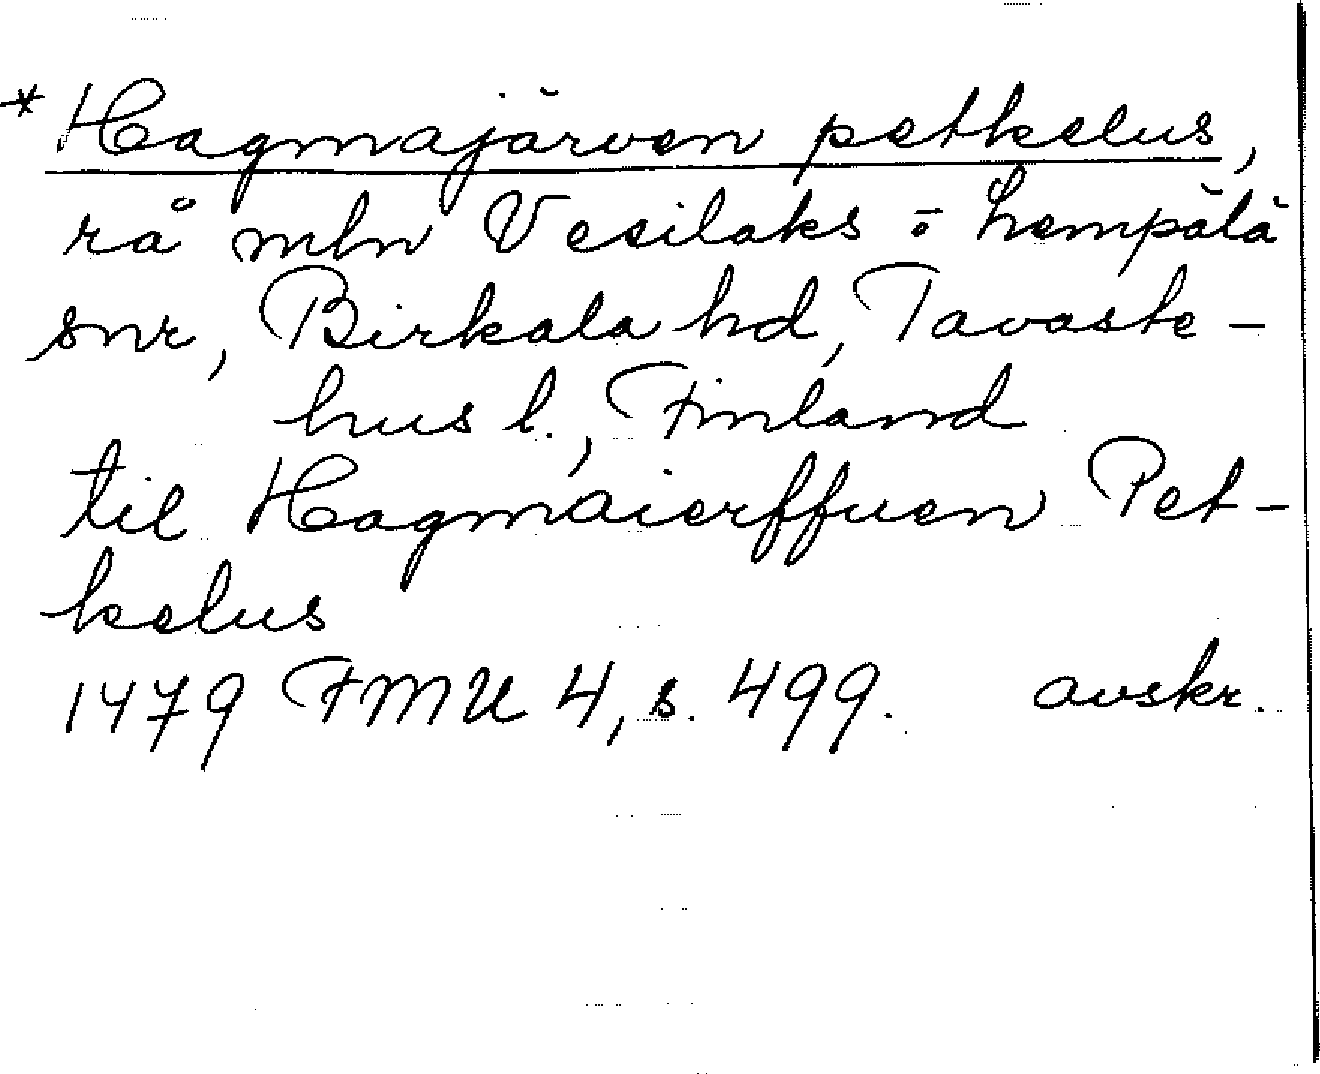 * Hagmajärven petkelus,
rå mln Vesilaks o Lempälä
snr, Birkala hd, Tavaste-
hus l., Finland
til Hagmaierffuen Pet-
kelus
1479 FMU 4, s. 499. avskr.